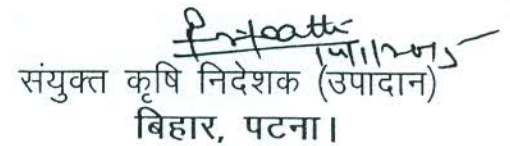 संयुक्त कृषि निदेशक (उपादान)
बिहार, पटना।